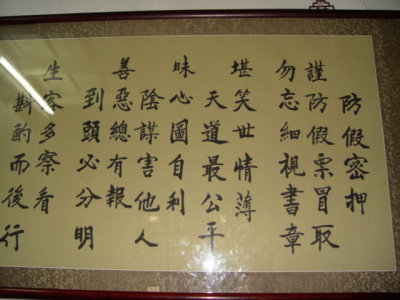 防假密押
謹防假票冒取
勿忘細視書章
堪笑世情薄
天道最公平
昧心圖自利
陰謀害他人
善惡總有報
到頭必分明
生客多察看
斟酌而後行